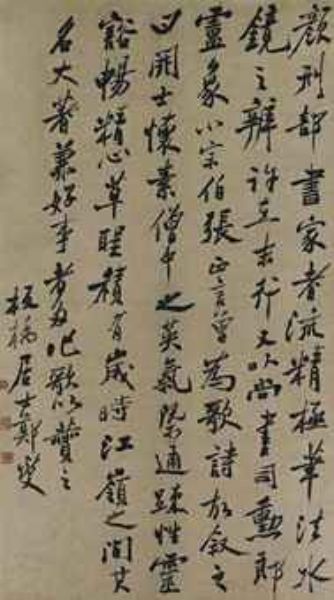 顔刑部書家者流精極筆法水
鏡之辨許在末行又以尚書司勳郎
靈象小宗伯張正言曾為歌詩故叙之
曰開士懷素僧中之英氣槩通疎性靈
豁暢精心草聖積有歲時江嶺之間其
名大著兼好事者為作歌以贊之
板橋居士鄭燮